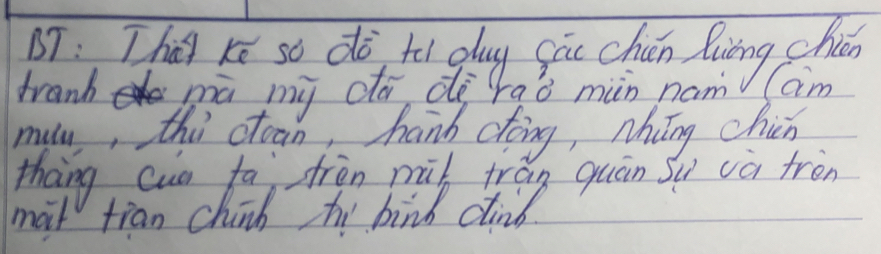 BT: Thiết kế sơ đồ tư duy các chiến lường chiến
tranh mà mỹ đã đề ra ở miền nam (âm
mưu, thủ đoạn, hành động, những chiến
thắng của ta trên mặt trận quân sự và trên
mặt trận chính trị bình định.